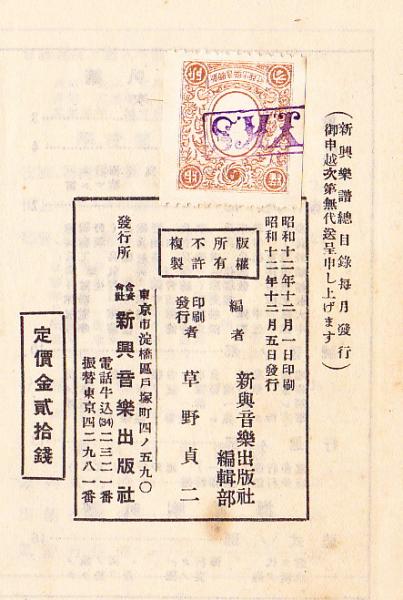 (新興樂譜總目錄每月發行
御申越次第無代送呈申し上げます)
昭和十二年十二月一日印刷
昭和十二年十二月五日發行
版權
所有
不許
複製
編者 新興音樂出版社
編輯部
印刷
發行者 草野貞二
東京市淀橋區戶塚町四ノ五九〇
發行所 合資會社 新興音樂出版社
電話牛込(34)二三二一番
振替東京四二九八一番
定價金貳拾錢